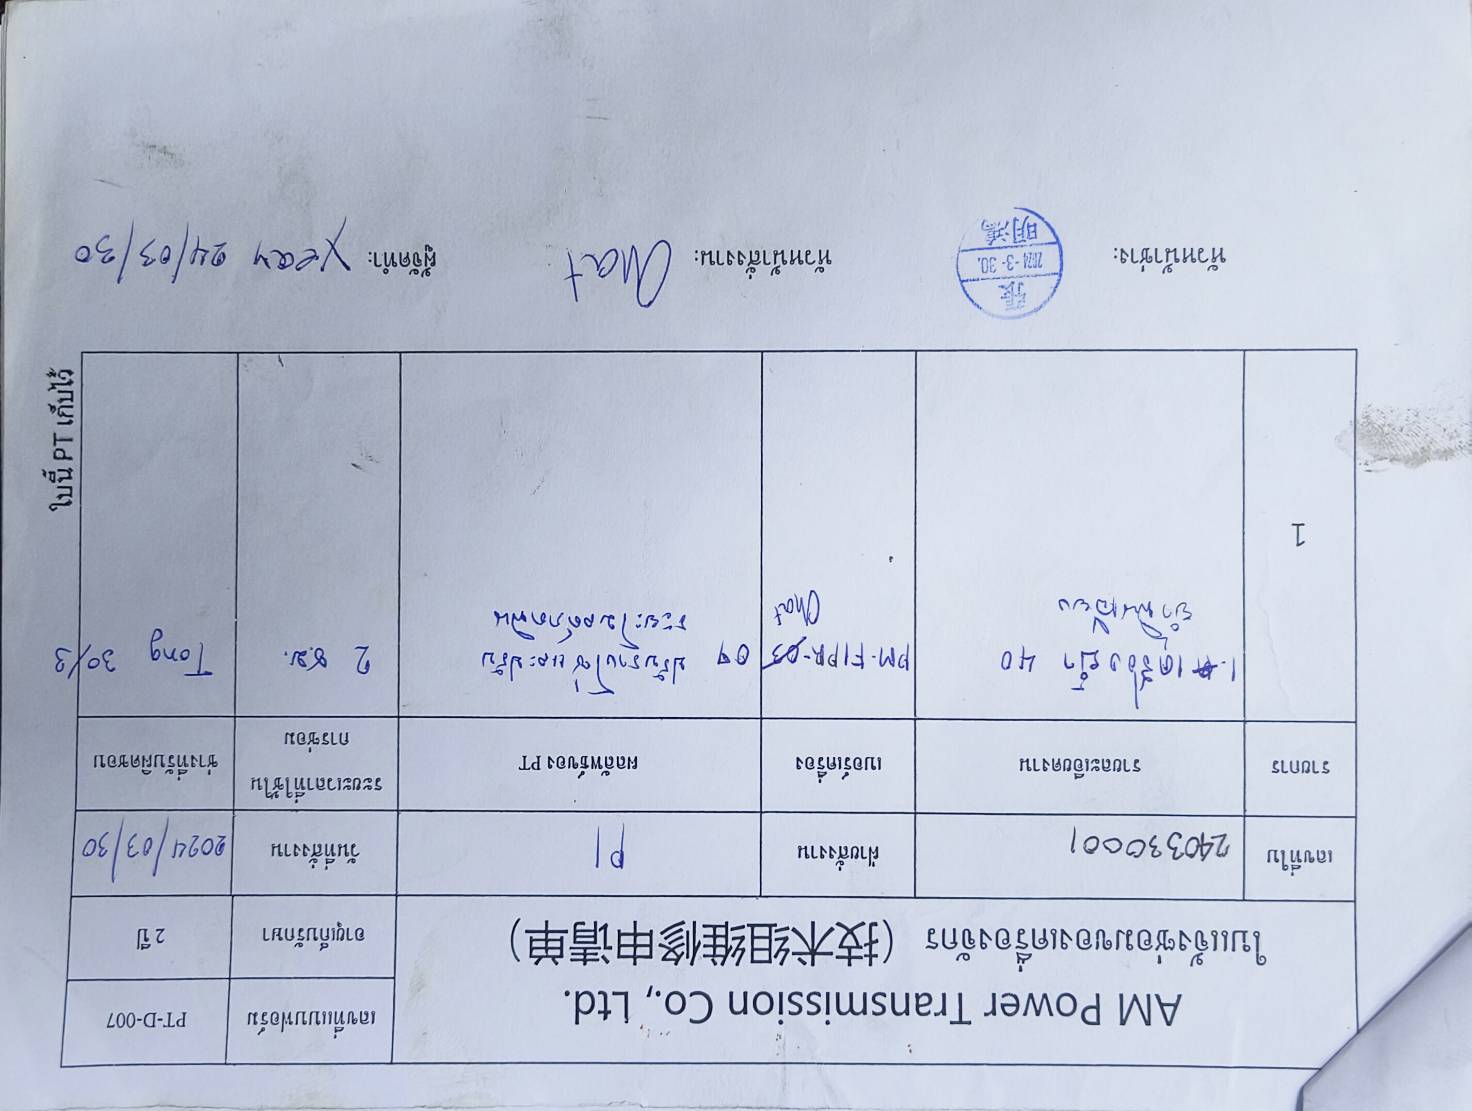 AM Power Transmission Co., Ltd.
ใบแจ้งซ่อมของเครื่องจักร (技术组维修申请单)
เลขที่แบบฟอร์ม PT-D-007
อายุเก็บรักษา 2 ปี
เลขที่ใบ 240330001 ฝ่ายสั่งงาน P1 วันที่สั่งงาน 2024/03/30
รายการ รายละเอียดงาน เบอร์เครื่อง ผลลัพธ์ของ PT ระยะเวลาที่ใช้ใน ช่างที่รับผิดชอบ
การซ่อม
1
1. เครื่องย้ำ 40
ย้ำพินเอียง
PM-FIPR-05 04
Chat
ปรับรางโซ่ และปรับ
ระยะโมลด์กดพิน
2 ช.ม.
Tong 30/3
ใบนี้ PT เก็บไว้
หัวหน้าช่าง: 張
2024-3-30.
明鴻
หัวหน้าสั่งงาน: Chat
ผู้จัดทำ: Yeay 24/03/30